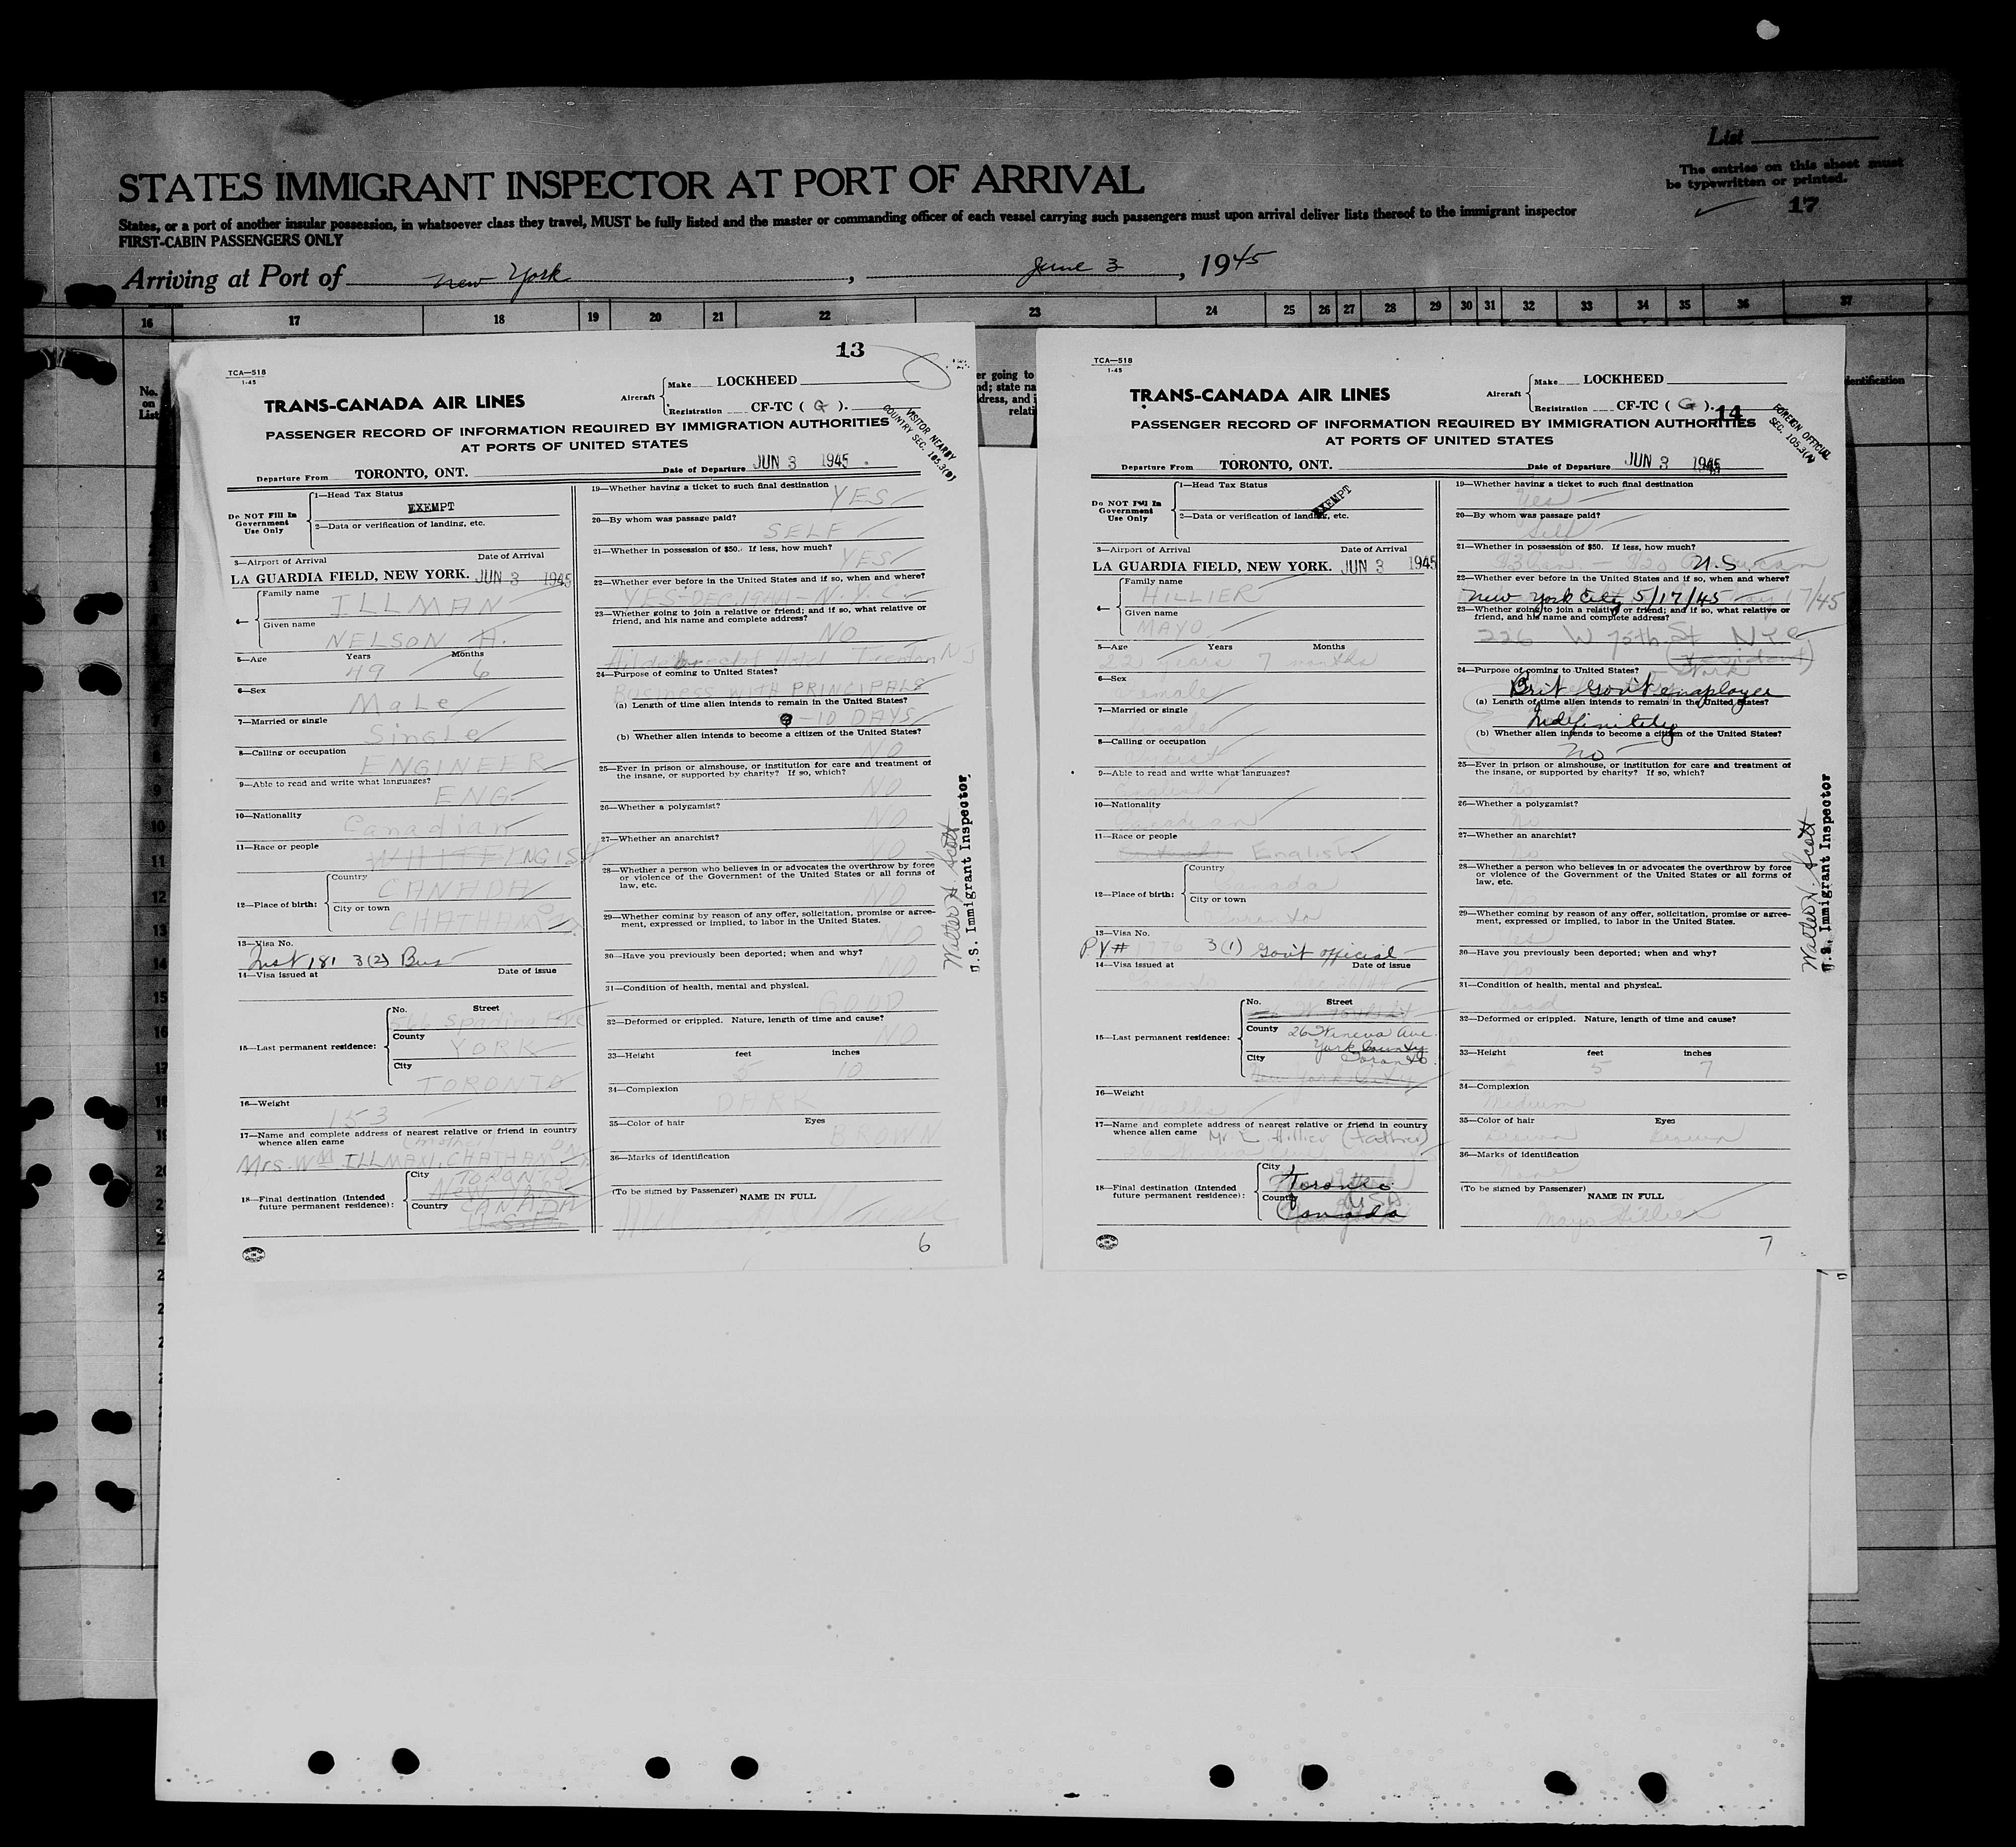 List
The entries on this sheet must
be typewritten or printed.
17
STATES IMMIGRANT INSPECTOR AT PORT OF ARRIVAL
States, or a port of another insular possession, in whatsoever class they travel, MUST be fully listed and the master or commanding officer of each vessel carrying such passengers must upon arrival deliver lists thereof to the immigrant inspector
FIRST-CABIN PASSENGERS ONLY
Arriving at Port of New York, June 3, 1945
16 17 18 19 20 21 22 23 24 25 26 27 28 29 30 31 32 33 34 35 36 37
No.
on
List
13
TCA—518
1-45
TRANS-CANADA AIR LINES
Aircraft
Make LOCKHEED
Registration CF-TC ( G ).
VISITOR NEARBY
COUNTRY SEC. 105.3(B)
PASSENGER RECORD OF INFORMATION REQUIRED BY IMMIGRATION AUTHORITIES
AT PORTS OF UNITED STATES
Departure From TORONTO, ONT. Date of Departure JUN 3 1945
Do NOT Fill In
Government
Use Only
1—Head Tax Status
EXEMPT
2—Data or verification of landing, etc.
3—Airport of Arrival Date of Arrival
LA GUARDIA FIELD, NEW YORK. JUN 3 1945
4—
Family name
ILLMAN
Given name
NELSON H.
5—Age Years Months
49 6
6—Sex
Male
7—Married or single
Single
8—Calling or occupation
ENGINEER
9—Able to read and write what languages?
ENG
10—Nationality
Canadian
11—Race or people
WHITE ENGISH
12—Place of birth:
Country
CANADA
City or town
CHATHAM
13—Visa No.
181 3(2) Bus
14—Visa issued at Date of issue
15—Last permanent residence:
No. Street
Spadina
County
YORK
City
TORONTO
16—Weight
153
17—Name and complete address of nearest relative or friend in country
whence alien came (mother)
Mrs. Wm ILLMAN, CHATHAM
18—Final destination (Intended
future permanent residence):
City TORONTO
Country CANADA
19—Whether having a ticket to such final destination
YES
20—By whom was passage paid?
SELF
21—Whether in possession of $50. If less, how much?
YES
22—Whether ever before in the United States and if so, when and where?
YES-DEC. 1944-N.Y.C.
23—Whether going to join a relative or friend; and if so, what relative or
friend, and his name and complete address?
NO
Hotel Trenton NJ
24—Purpose of coming to United States?
BUSINESS WITH PRINCIPALS
(a) Length of time alien intends to remain in the United States?
-10 DAYS
(b) Whether alien intends to become a citizen of the United States?
NO
25—Ever in prison or almshouse, or institution for care and treatment of
the insane, or supported by charity? If so, which?
NO
26—Whether a polygamist?
NO
27—Whether an anarchist?
NO
28—Whether a person who believes in or advocates the overthrow by force
or violence of the Government of the United States or all forms of
law, etc.
NO
29—Whether coming by reason of any offer, solicitation, promise or agree-
ment, expressed or implied, to labor in the United States.
NO
30—Have you previously been deported; when and why?
NO
31—Condition of health, mental and physical.
GOOD
32—Deformed or crippled. Nature, length of time and cause?
NO
33—Height feet inches
5 10
34—Complexion
DARK
35—Color of hair Eyes
BROWN
36—Marks of identification
(To be signed by Passenger)
NAME IN FULL
6
Walter H. Scott
U.S. Immigrant Inspector
14
TCA—518
1-45
TRANS-CANADA AIR LINES
Aircraft
Make LOCKHEED
Registration CF-TC ( G ).
FOREIGN OFFICIAL
PASSENGER RECORD OF INFORMATION REQUIRED BY IMMIGRATION AUTHORITIES
AT PORTS OF UNITED STATES
Departure From TORONTO, ONT. Date of Departure JUN 3 1945
Do NOT Fill In
Government
Use Only
1—Head Tax Status
EXEMPT
2—Data or verification of landing, etc.
3—Airport of Arrival Date of Arrival
LA GUARDIA FIELD, NEW YORK. JUN 3 1945
4—
Family name
HILLIER
Given name
MAYO
5—Age Years Months
22 years 7 months
6—Sex
Female
7—Married or single
Single
8—Calling or occupation
9—Able to read and write what languages?
English
10—Nationality
Canadian
11—Race or people
English
12—Place of birth:
Country
Canada
City or town
Toronto
13—Visa No.
PV# 1776 3(1) Gov't official
14—Visa issued at Date of issue
15—Last permanent residence:
No. Street
County 26 Wineva Ave
York County
City Toronto
New York City
16—Weight
17—Name and complete address of nearest relative or friend in country
whence alien came Mr. L. Hillier (father)
18—Final destination (Intended
future permanent residence):
City
Toronto
Country
Canada
19—Whether having a ticket to such final destination
Yes
20—By whom was passage paid?
Self
21—Whether in possession of $50. If less, how much?
U.S.
22—Whether ever before in the United States and if so, when and where?
New York City 5/17/45
23—Whether going to join a relative or friend; and if so, what relative or
friend, and his name and complete address?
226 W 75th St NYC
(resident)
24—Purpose of coming to United States?
Brit Gov't employee
(a) Length of time alien intends to remain in the United States?
Indefinitely
(b) Whether alien intends to become a citizen of the United States?
No
25—Ever in prison or almshouse, or institution for care and treatment of
the insane, or supported by charity? If so, which?
No
26—Whether a polygamist?
No
27—Whether an anarchist?
No
28—Whether a person who believes in or advocates the overthrow by force
or violence of the Government of the United States or all forms of
law, etc.
29—Whether coming by reason of any offer, solicitation, promise or agree-
ment, expressed or implied, to labor in the United States.
Yes
30—Have you previously been deported; when and why?
No
31—Condition of health, mental and physical.
Good
32—Deformed or crippled. Nature, length of time and cause?
33—Height feet inches
5 7
34—Complexion
Medium
35—Color of hair Eyes
Brown Brown
36—Marks of identification
None
(To be signed by Passenger)
NAME IN FULL
Mayo Hillier
7
Walter H. Scott
U.S. Immigrant Inspector